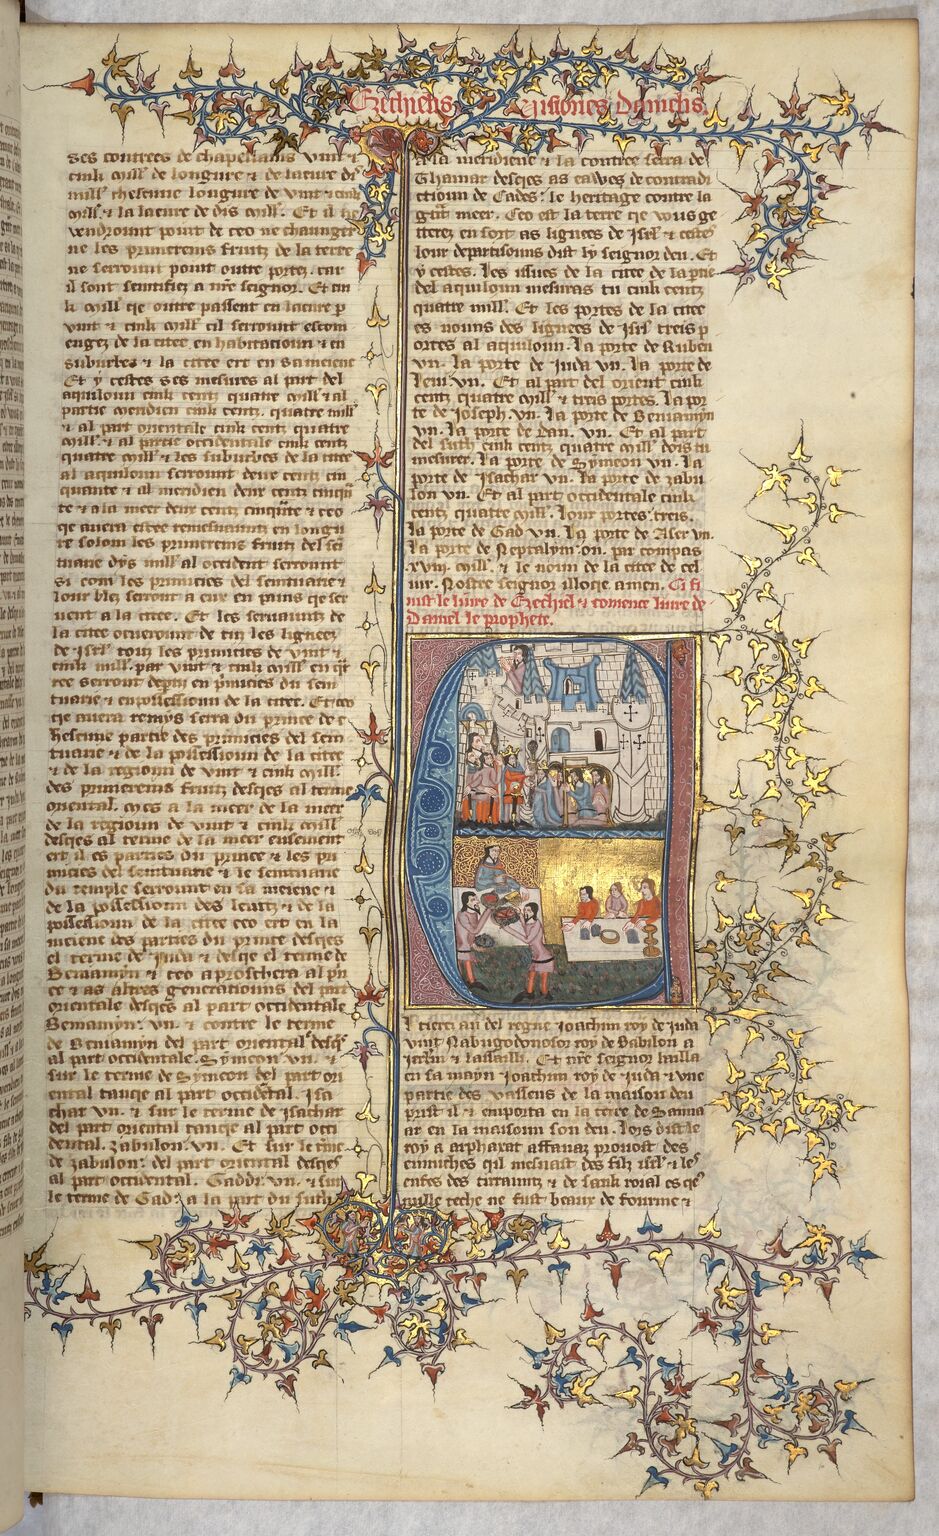 Ezechielis Visiones Danielis
des contrees de chapellains vint &
cink mill' de longure & de laeure dis
mill' chescune longure de vint & cink
mill' & la laeure de dis mill'. Et il ne
vendrount point de ceo ne chaunger
ne les primereins fruitz de la terre
ne serrount point outre portez. car
il sont seintifiez a nre seignor. Et cin
k mill' qe outre passent en laeure p
vint & cink mill' cil serrount estom
engez de la citee en habitacioun & en
suburbes & la citee ert en sa meiene
Et y cestes ses mesures al part del
aquiloun cink centz quatre mill' & al
partie meridien cink centz. quatre mill'
& al part orientale cink centz quatre
mill'. & al partie occidentale cink centz
quatre mill' & les suburbes de la citee
al aquiloun serrount deus centz cin
quante & al meridien deux centz cinqu
te & a la meer deux centz cinquante & ceo
qe avera estee remesnauntz en longu
re solom les primereins fruitz del sei
tuarie dys mill' al occident serrount
si com les primicies del seintuarie &
lour blez serront a eux en pains qe ser
uent a la citee. Et les seruauntz de
la citee oeueront de touz les lignees
de Isrl' touz les primicies de vint &
cink mill'. par vint & cink mill' en
ree serront en primicies du sein
tuarie & en possessioun de la citee. Et ceo
qe auera remys serra du prince de c
hescune partie des primicies del sein
tuarie & de la possessioun de la citee
& de la regioun de vint & cink mill'.
des primereins fruitz desqes al terme
oriental. mes a la meer de la meer
de la regioun de vint & cink mill'
desqes al terme de la meer ensement
ert il es parties du prince & les pri
micies del seintuarie & le seintuarie
du temple serrount en sa meiene &
de la possessioun des leuitz & de la
possessioun de la citee ceo ert en la
meiene des parties du prince desqes
el terme de Juda & desqe el terme de
Beniamyn & ceo aproschera al prin
ce & as altres generaciouns del part
orientale desqes al part occidentale
Beniamyn: vn. & contre le terme
de Beniamyn del part oriental desqes
al part occidentale. Symeon vn. &
sur le terme de Symeon del part ori
ental tanqe al part occidental. Isa
char vn. & sur le terme de Isachar
del part oriental tanqe al part occi
dental. Zabulon. vn. Et sur le terme
de Zabulon: del part oriental desqes
al part occidental. Gad: vn. & sur
le terme de Gad: a la part du suth
a la meridiene & la contree serra de
Thamar desqes as eawes de contradi
ctioun de Cades: le heritage contre la
grant meer. Ceo est la terre qe vous ge
tterez en sort as lignees de Isrl' & cestes
lour departisouns dist ly seignor deu. Et
y cestes. les issues de la citee de la ptie
del aquiloun mesuras tu cink centz
quatre mill'. Et les portes de la citee
es nouns des lignees de Isrl' treis p
ortes al aquiloun. la porte de Ruben
vn. la porte de Juda vn. la porte de
Leui vn. Et al part del orient cink
centz quatre mill' & treis portes. la por
te de Joseph. vn. la porte de Beniamyn
vn. la porte de Dan. vn. Et al part
del suth cink centz quatre mill' dois tu
mesurer. la porte de Symeon vn. la
porte de Isachar vn. la porte de Zabu
lon vn. Et al part occidentale cink
centz quatre mill'. lour portes: treis.
la porte de Gad vn. la porte de Aser vn.
la porte de Neptalym: on. par compas
xviij. mill'. & le noun de la citee de cel
iur. Nostre seignor illoqe. amen. Ci fi
nist le liure de Ezechiel & comence liure de
Daniel le prophete.
l tierci an del regne Joachim roy de Juda
vint Nabugodonosor roy de Babilon a
Jerlm & lassailli. Et nre seignor bailla
en sa mayn Joachim roy de Juda & vne
partie des vasseus de la maisoun deu
prist il & emporta en la terre de Sanna
ar en la maisoun son deu. lors dist le
roy a prouost des
eunuches qil mesnast des filz isrl' & les
enfes des tirauntz & de sank roial es qes
nulle teche ne fust beaux de fourme &